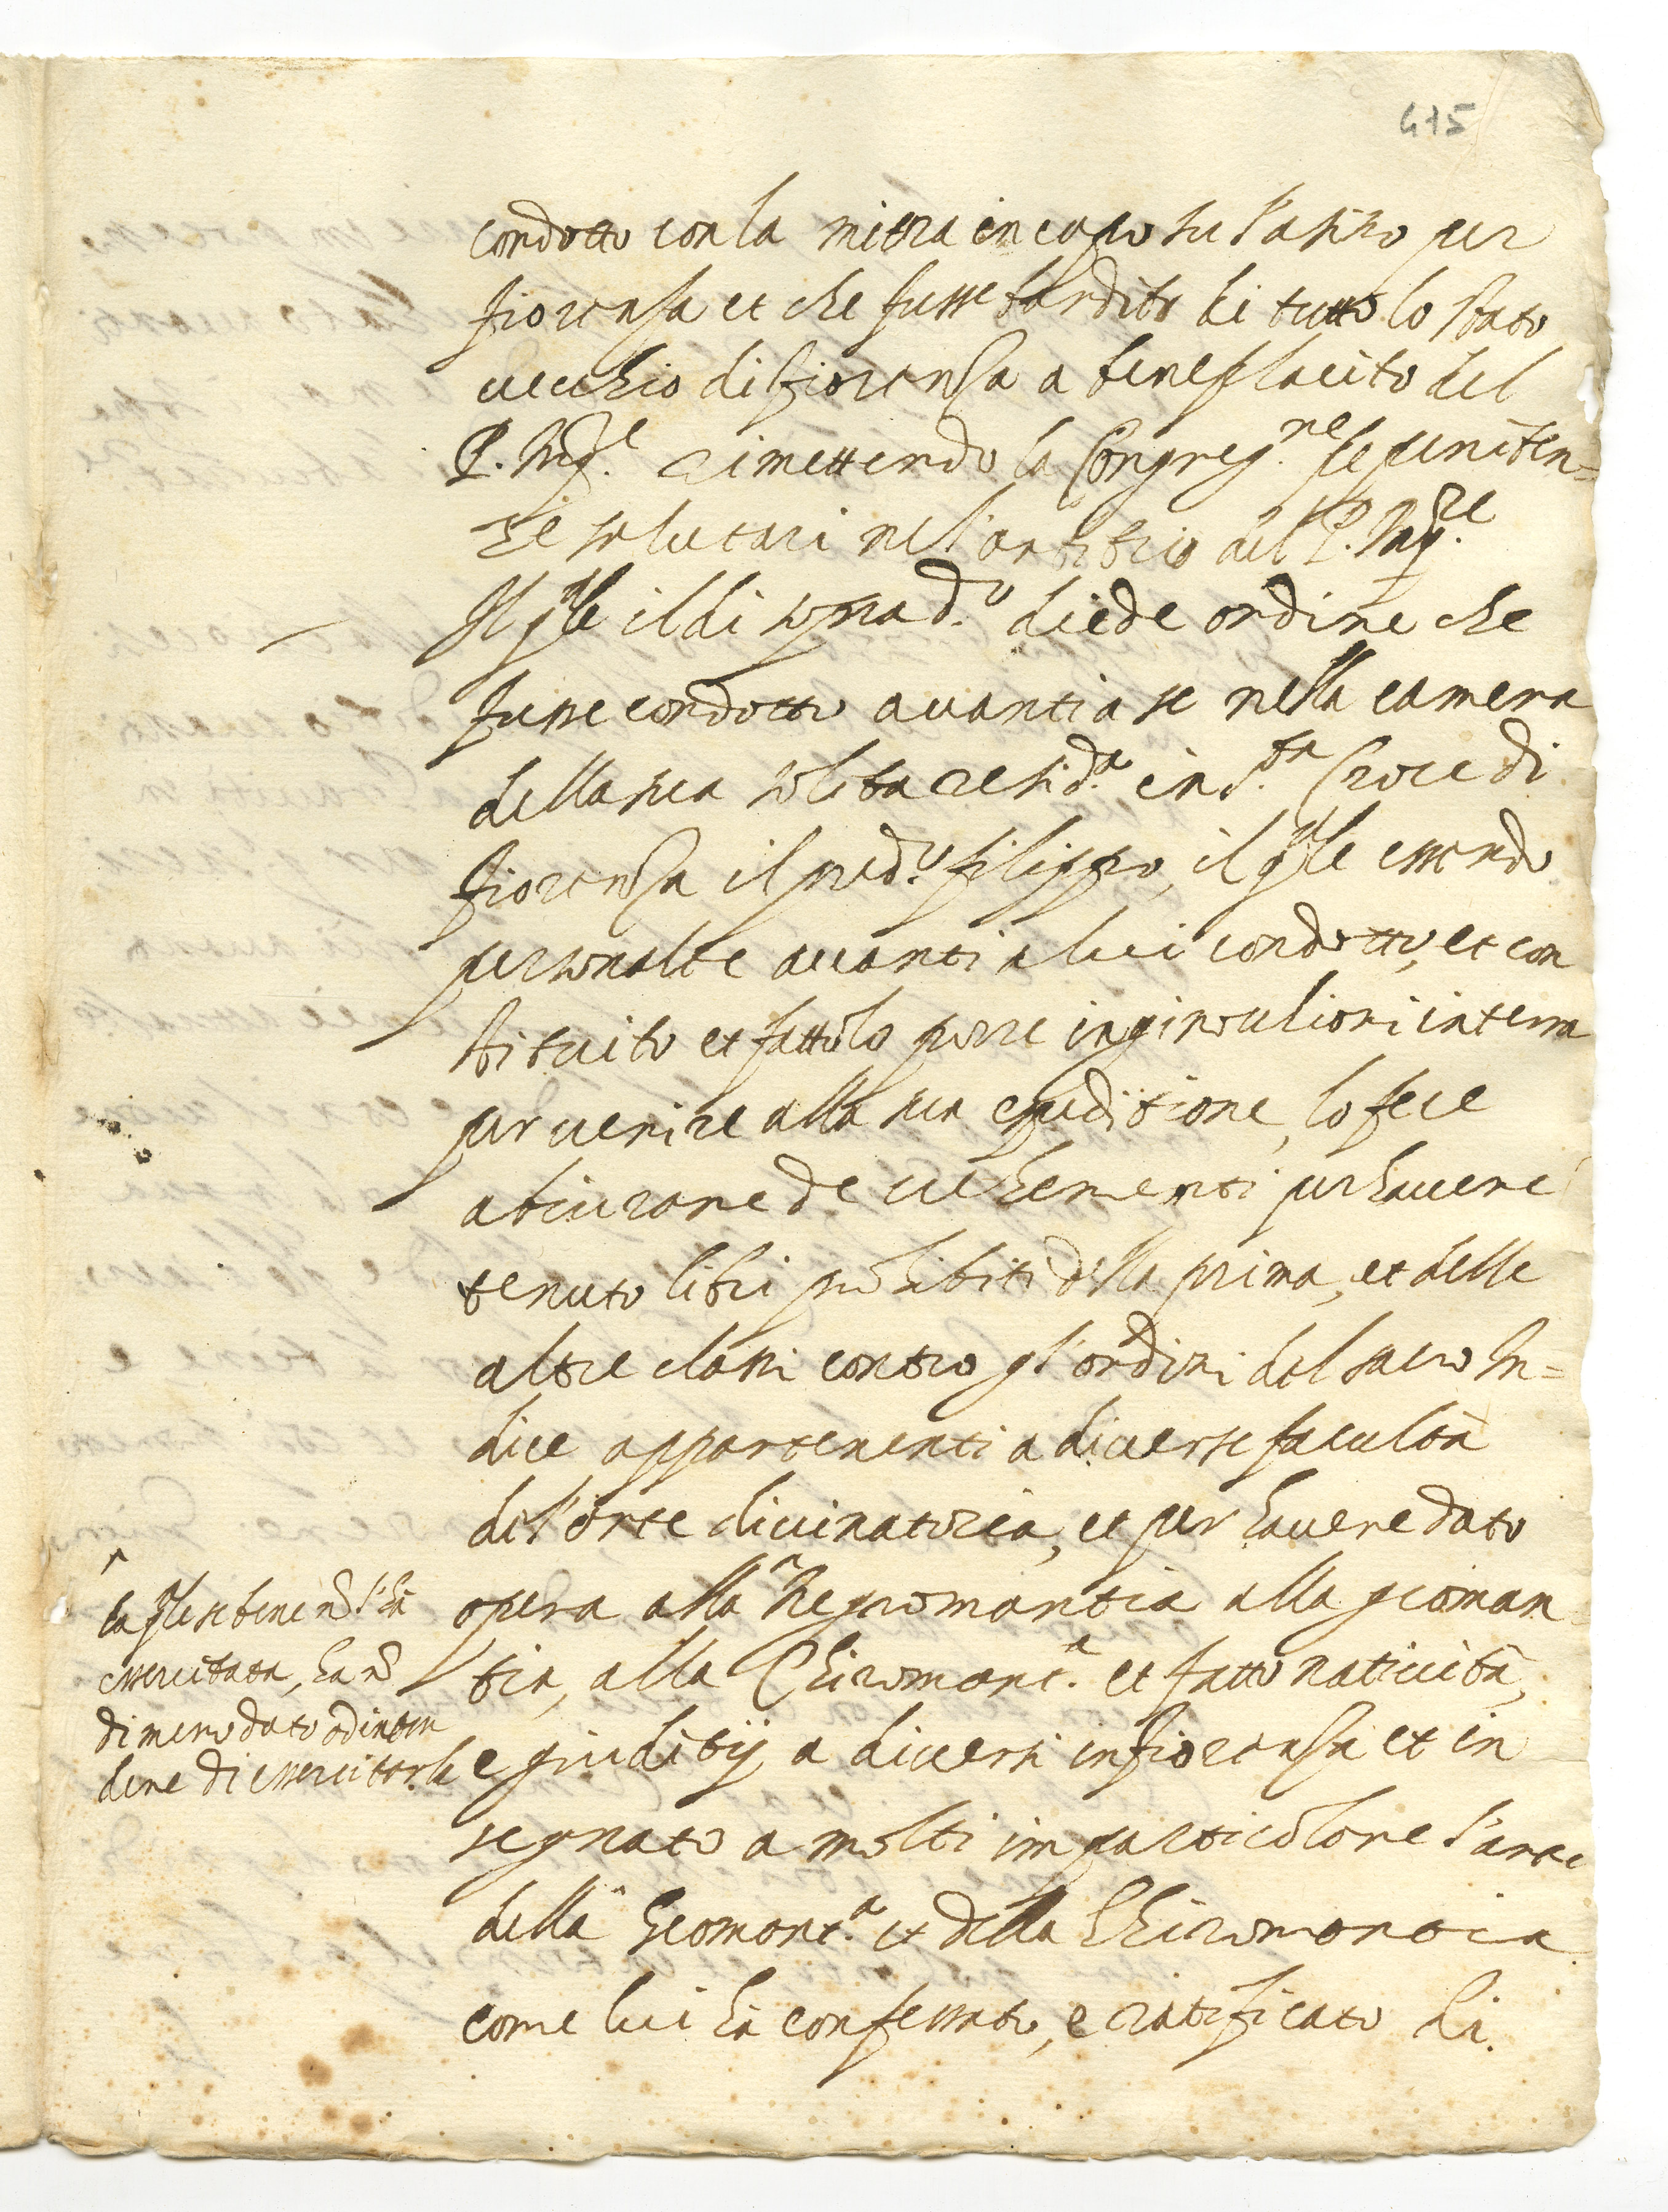 415
condotto con la mitra in capo su l'asino per
fiorenza et che fusse bandito di tutto lo stato
vecchio di fiorenza a beneplacito del
P. Inq.re rimettendo la Congreg.ne le peniten=
tie salutari nel'arbitrio del P. Inq.re
Il qle il di sopra d.o diede ordine che
fusse condotto avanti a se nella camera
della sua solita resid.a in S.ta Croce di
fiorenza il pred.o filippo, il qle essendo
personalte avanti a lui condotto, et con
stituito et fattolo porre inginoulioni in terra
per venire alla sua espeditione, lo fece
abiurare de vehementi per havere
tenuto libri prohibiti della prima, et delle
altre classi contro gl'ordini del sacro In=
dice appartenenti a diverse facultà
del'arte divinatoria, et per havere dato
opera alla ^ Negromantia alla geoman
tia, alla Chiromant.a et fatto natività,
e giuditij a diversi in fiorenza et in
segnato a molti in particolare l'arte
della Geomant.a et della Chiromantia
come lui hà confessato, e ratificato di.
^
la qle se bene nõ l'hà
essercitata, ha nõ
di meno dato ad inten
dere di essercitarla